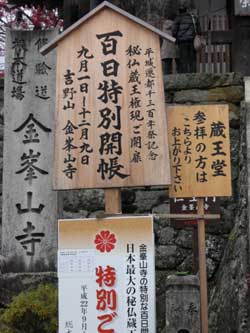 平城遷都千三百年祭記念
秘仏蔵王権現ご開扉
百日特別開帳
九月一日~十二月九日
吉野山 金峯山寺
蔵王堂
参拝の方は
こちらより
お上がり下さい
金峯山寺
金峯山寺の特別な百日間
日本最大の秘仏蔵王
特別ご
平成22年9月